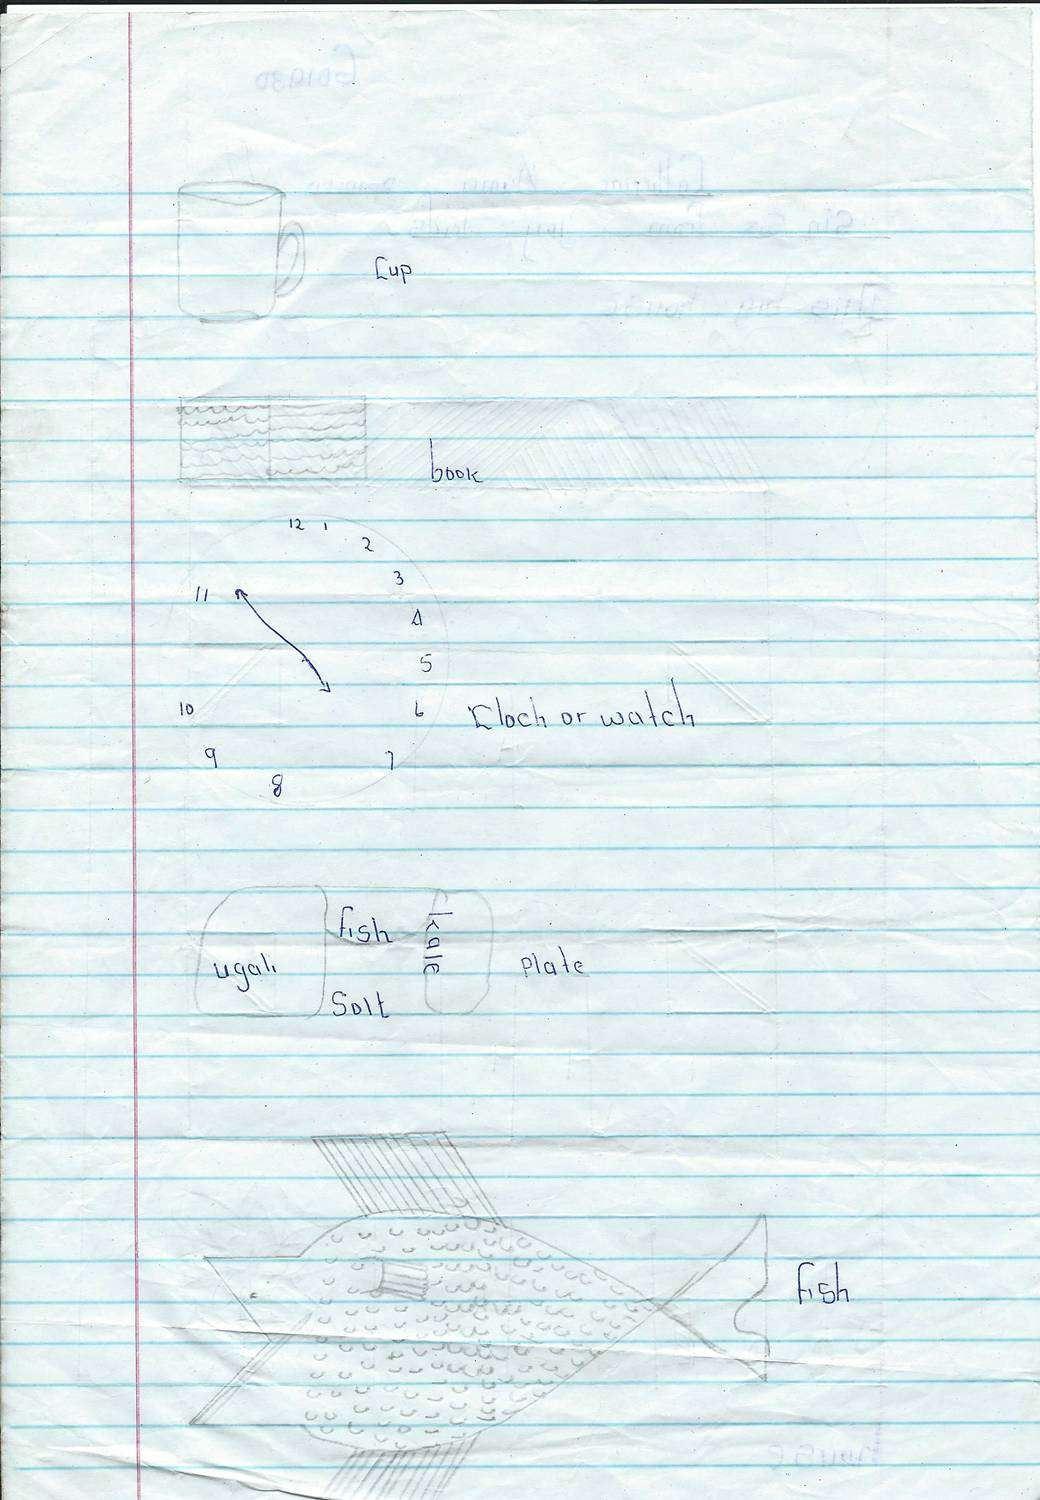 Cup
book
12 1
2
3
11
4
5
10
6
Cloch or watch
9
7
8
fish
kale
ugali
plate
Solt
fish